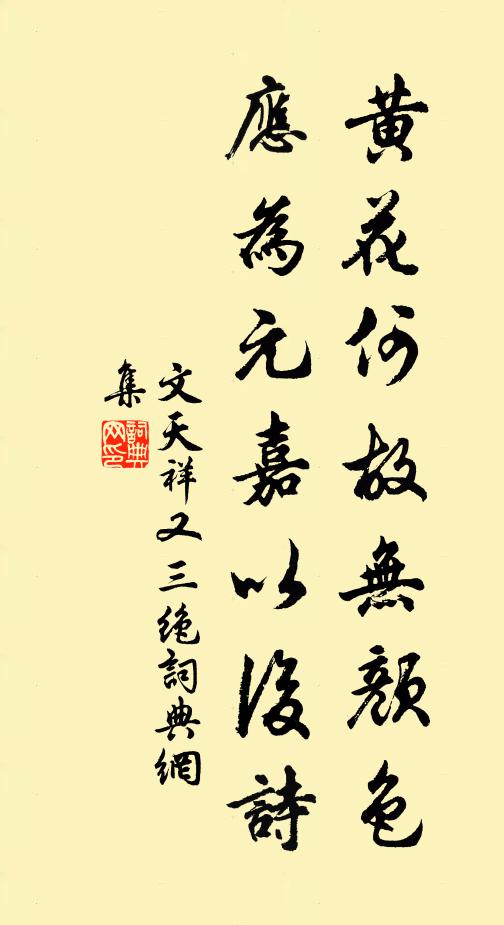 黃花何故無顏色
應為元嘉以後詩
文天祥又三絶詞典網
集
詞典
网印